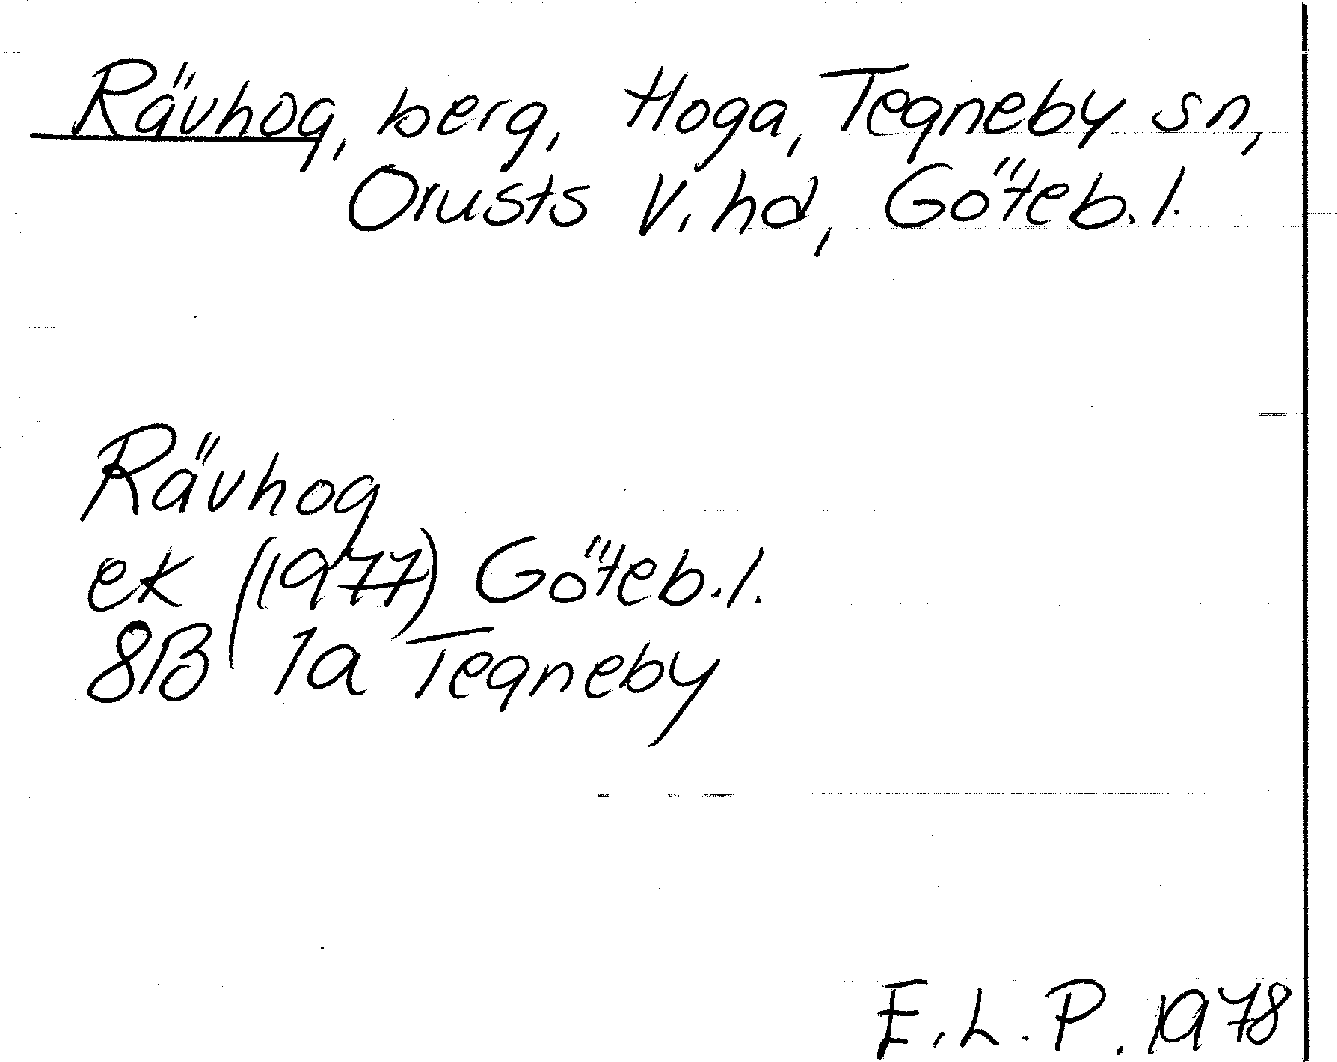 Rävhog, berg, Hoga, Tegneby sn,
Orusts V. hd, Göteb. l.
Rävhog
ek (1977) Göteb. l.
8B 1a Tegneby
E. L. P. 1978